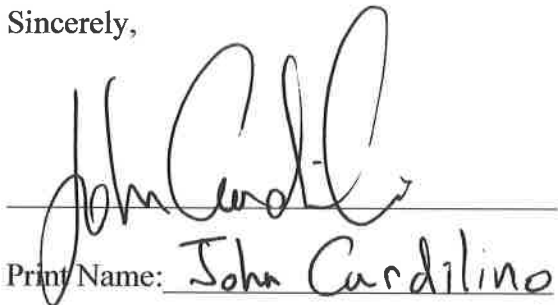 Sincerely,
John Cardilino
Print Name: John Cardilino